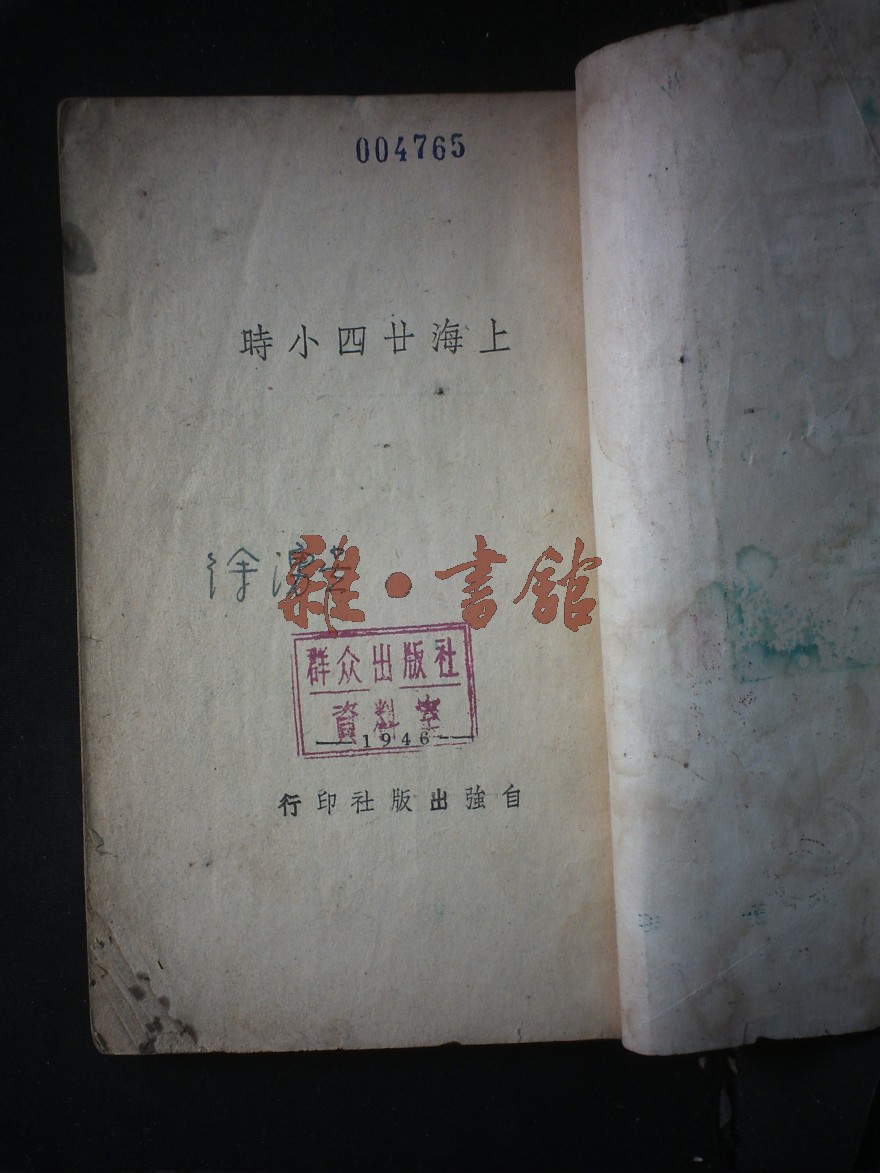 004765
上海廿四小時
徐
雜·書館
群众出版社
資料室
—1946—
自強出版社印行